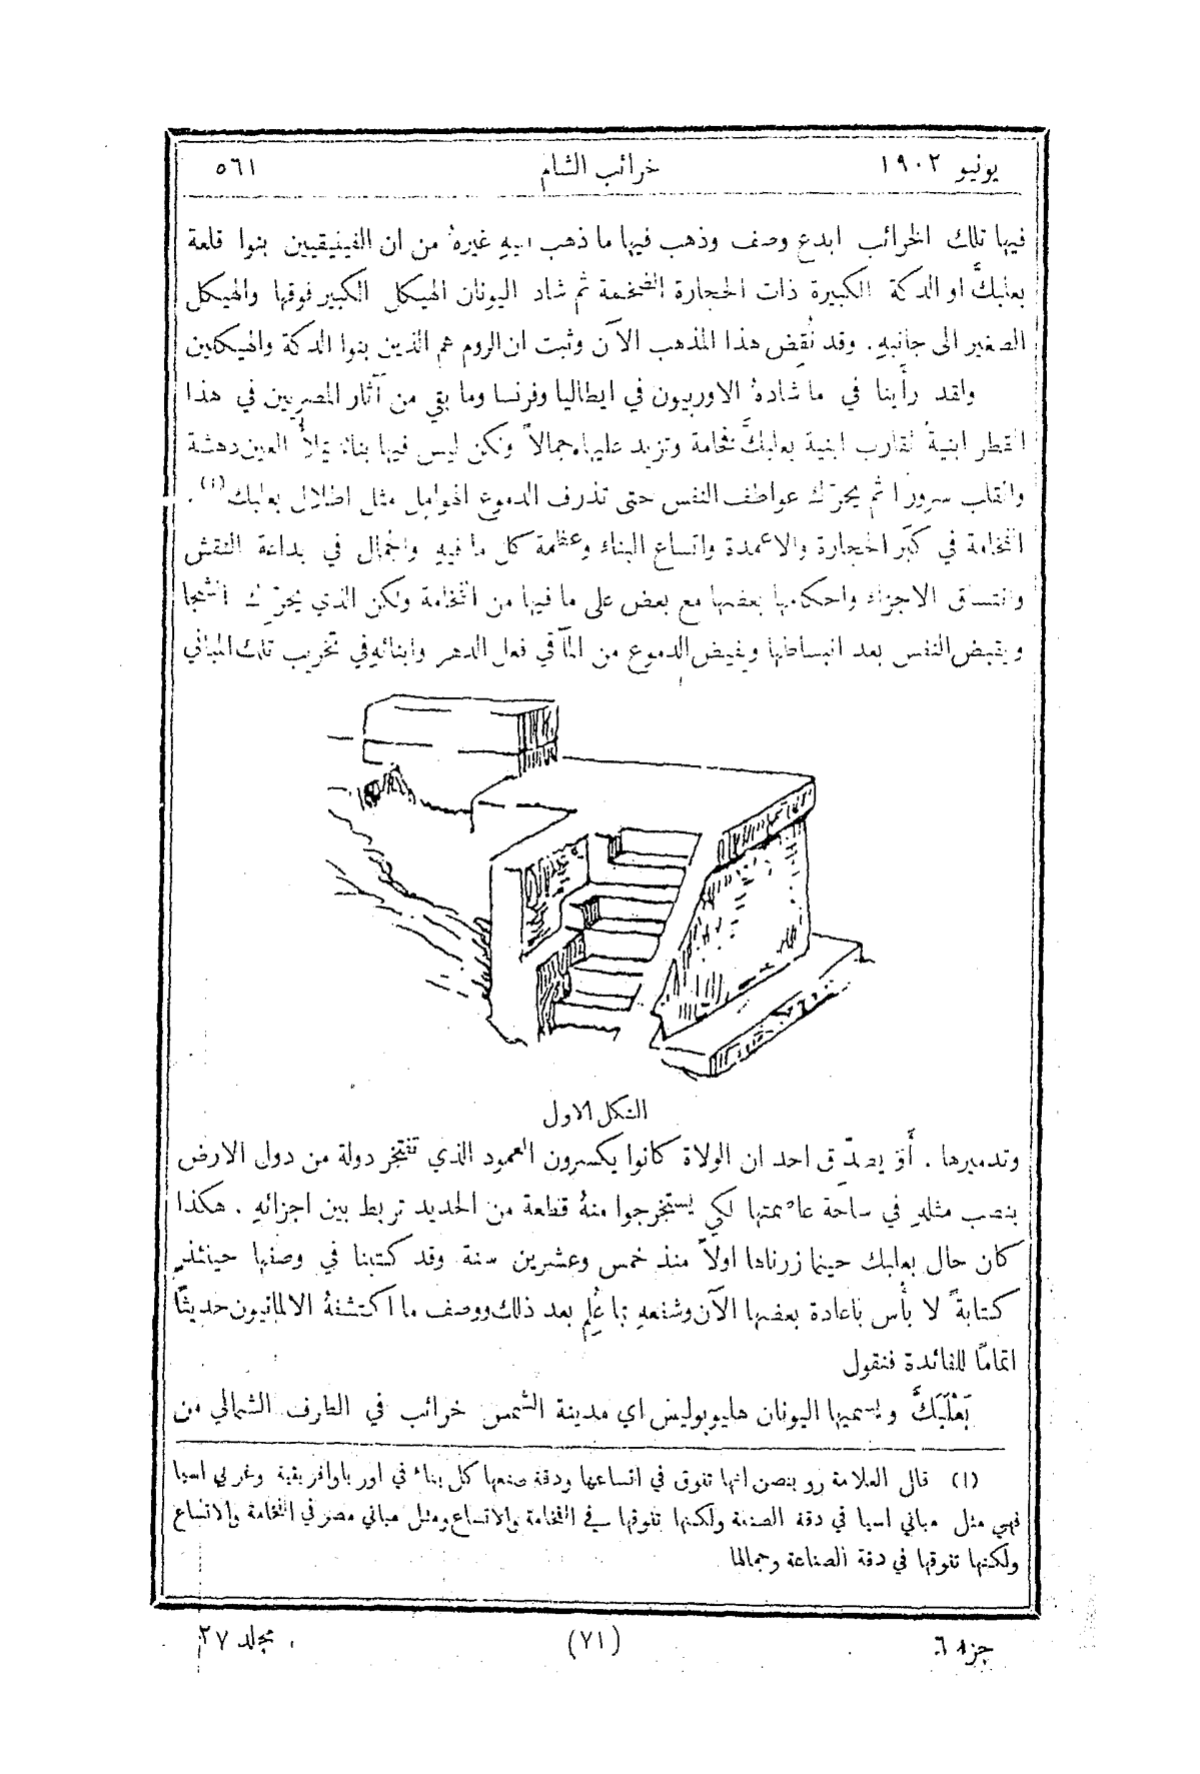 يونيو ١٩٠٢ خرائب الشام ٥٦١
فيها تلك الخرائب ابدع وصف وذهب فيها ما ذهب اليهِ غيرهُ من ان الفينيقيين بنوا قلعة
بعلبكَّ او الدكة الكبيرة ذات الحجارة الضخمة ثم شاد اليونان الهيكل الكبير فوقها والهيكل
الصغير الى جانبهِ. وقد نُقِض هذا المذهب الآن وثبت ان الروم هم الذين بنوا الدكة والهيكلين
ولقد رأينا في ما شادهُ الاوربيون في ايطاليا وفرنسا وما بقي من آثار المصريين في هذا
القطر ابنيةً تقارب ابنية بعلبكَّ فخامة وتزيد عليها جمالاً ولكن ليس فيها بناءٌ يملأُ العين دهشة
والقلب سرورًا ثم يحرّك عواطف النفس حتى تذرف الدموع الهوامل مثل اطلال بعلبك(١).
الفخامة في كبَر الحجارة والاعمدة واتساع البناء وعظمة كل ما فيهِ والجمال في بداعة النقش
واتساق الاجزاء واحكامها بعضها مع بعض على ما فيها من الفخامة ولكن الذي يحرّك الشجا
ويقبض النفس بعد انبساطها ويفيض الدموع من المآقي فعل الدهر وابنائهِ في تخريب تلك المباني
الشكل الاول
وتدميرها. أَوَ يصدّق احد ان الولاة كانوا يكسرون العمود الذي تفتخر دولة من دول الارض
بنصب مثلهِ في ساحة عاصمتها لكي يستخرجوا منهُ قطعة من الحديد تربط بين اجزائهِ. هكذا
كان حال بعلبك حينما زرناها اولاً منذ خمس وعشرين سنة وقد كتبنا في وصفها حينئذٍ
كتابةً لا بأس باعادة بعضها الآن وشفعهِ بما عُلِم بعد ذلك ووصف ما اكتشفهُ الالمانيون حديثًا
اتمامًا للفائدة فنقول
بَعْلَبَكَّ ويسميها اليونان هليوبوليس اي مدينة الشمس خرائب في الطرف الشمالي من
(١) قال العلامة روبنصن انها تفوق في اتساعها ودقة صنعها كل بناء في اوربا وافريقية وغربي اسيا
فهي مثل مباني اسيا في دقة الصنعة ولكنها تفوقها في الفخامة والاتساع ومثل مباني مصر في الفخامة والاتساع
ولكنها تفوقها في دقة الصناعة وجمالها
جزء ٦ (٧١) مجلد ٢٧